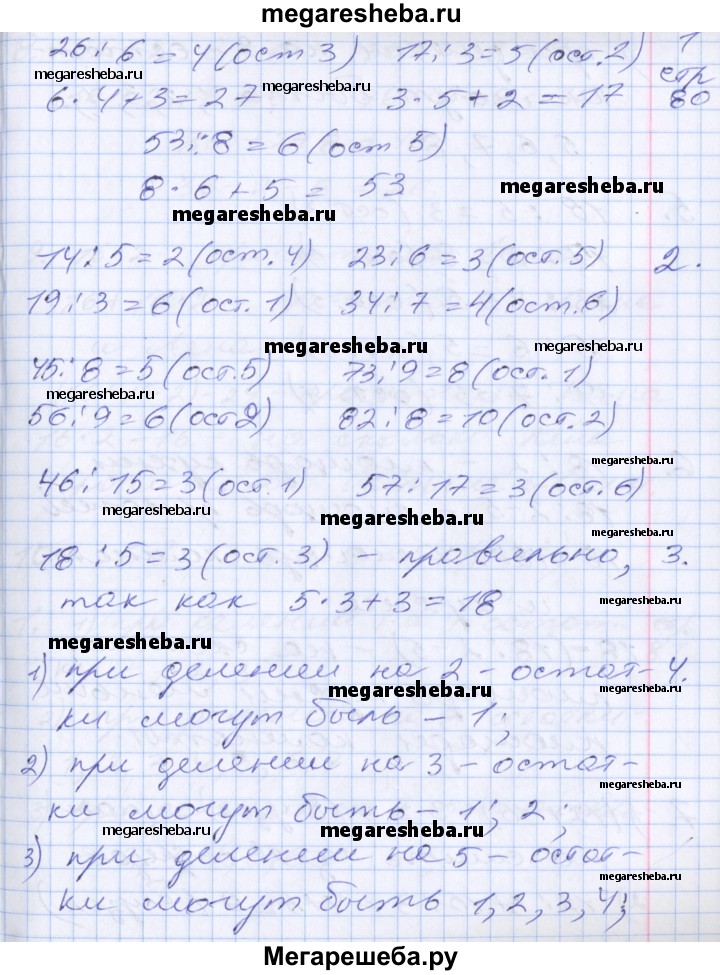 megaresheba.ru
26 : 6 = 4 (ост 3) 17 : 3 = 5 (ост. 2) 1
megaresheba.ru megaresheba.ru стр
6 · 4 + 3 = 27 3 · 5 + 2 = 17 80
53 : 8 = 6 (ост 5)
8 · 6 + 5 = 53 megaresheba.ru
megaresheba.ru
14 : 5 = 2 (ост. 4) 23 : 6 = 3 (ост. 5) 2.
19 : 3 = 6 (ост. 1) 34 : 7 = 4 (ост. 6)
megaresheba.ru megaresheba.ru
45 : 8 = 5 (ост. 5) 73 : 9 = 8 (ост. 1)
megaresheba.ru
56 : 9 = 6 (ост 2) 82 : 8 = 10 (ост. 2)
megaresheba.ru
46 : 15 = 3 (ост. 1) 57 : 17 = 3 (ост. 6)
megaresheba.ru megaresheba.ru
megaresheba.ru
18 : 5 = 3 (ост. 3) – правильно, 3.
так как 5 · 3 + 3 = 18 megaresheba.ru
megaresheba.ru
1) при делении на 2 – остат- 4.
megaresheba.ru megaresheba.ru
ки могут быль – 1;
2) при делении на 3 – остат-
megaresheba.ru
ки могут быть – 1; 2;
megaresheba.ru megaresheba.ru megaresheba.ru
3) при делении на 5 – остат-
megaresheba.ru
ки могут быть 1, 2, 3, 4;
megaresheba.ru
Мегарешеба.ру